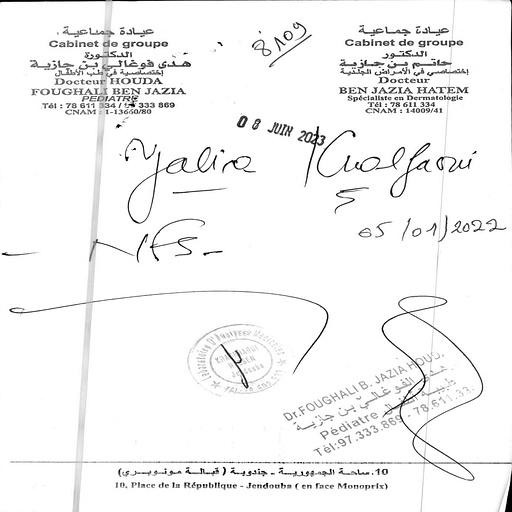 8109
عيادة جماعية
Cabinet de groupe
الدكتورة
هدى فوغالي بن جازية
إختصاصية في طب الأطفال
Docteur HOUDA
FOUGHALI BEN JAZIA
PEDIATRE
Tél : 78 611 334 / 97 333 869
CNAM : 1-13660/80
عيادة جماعية
Cabinet de groupe
الدكتور
حاتم بن جازية
إختصاصي في الأمراض الجلدية
Docteur
BEN JAZIA HATEM
Spécialiste en Dermatologie
Tél : 78 611 334
CNAM : 14009/41
08 JUIN 2023
05/01/2022
- NFS -
Dr. FOUGHALI B. JAZIA HOUD
Pédiatre
Tél: 97.333.869 - 78.611.33
10، ساحة الجمهورية - جندوبة (قبالة مونوبري)
10, Place de la République - Jendouba ( en face Monoprix)